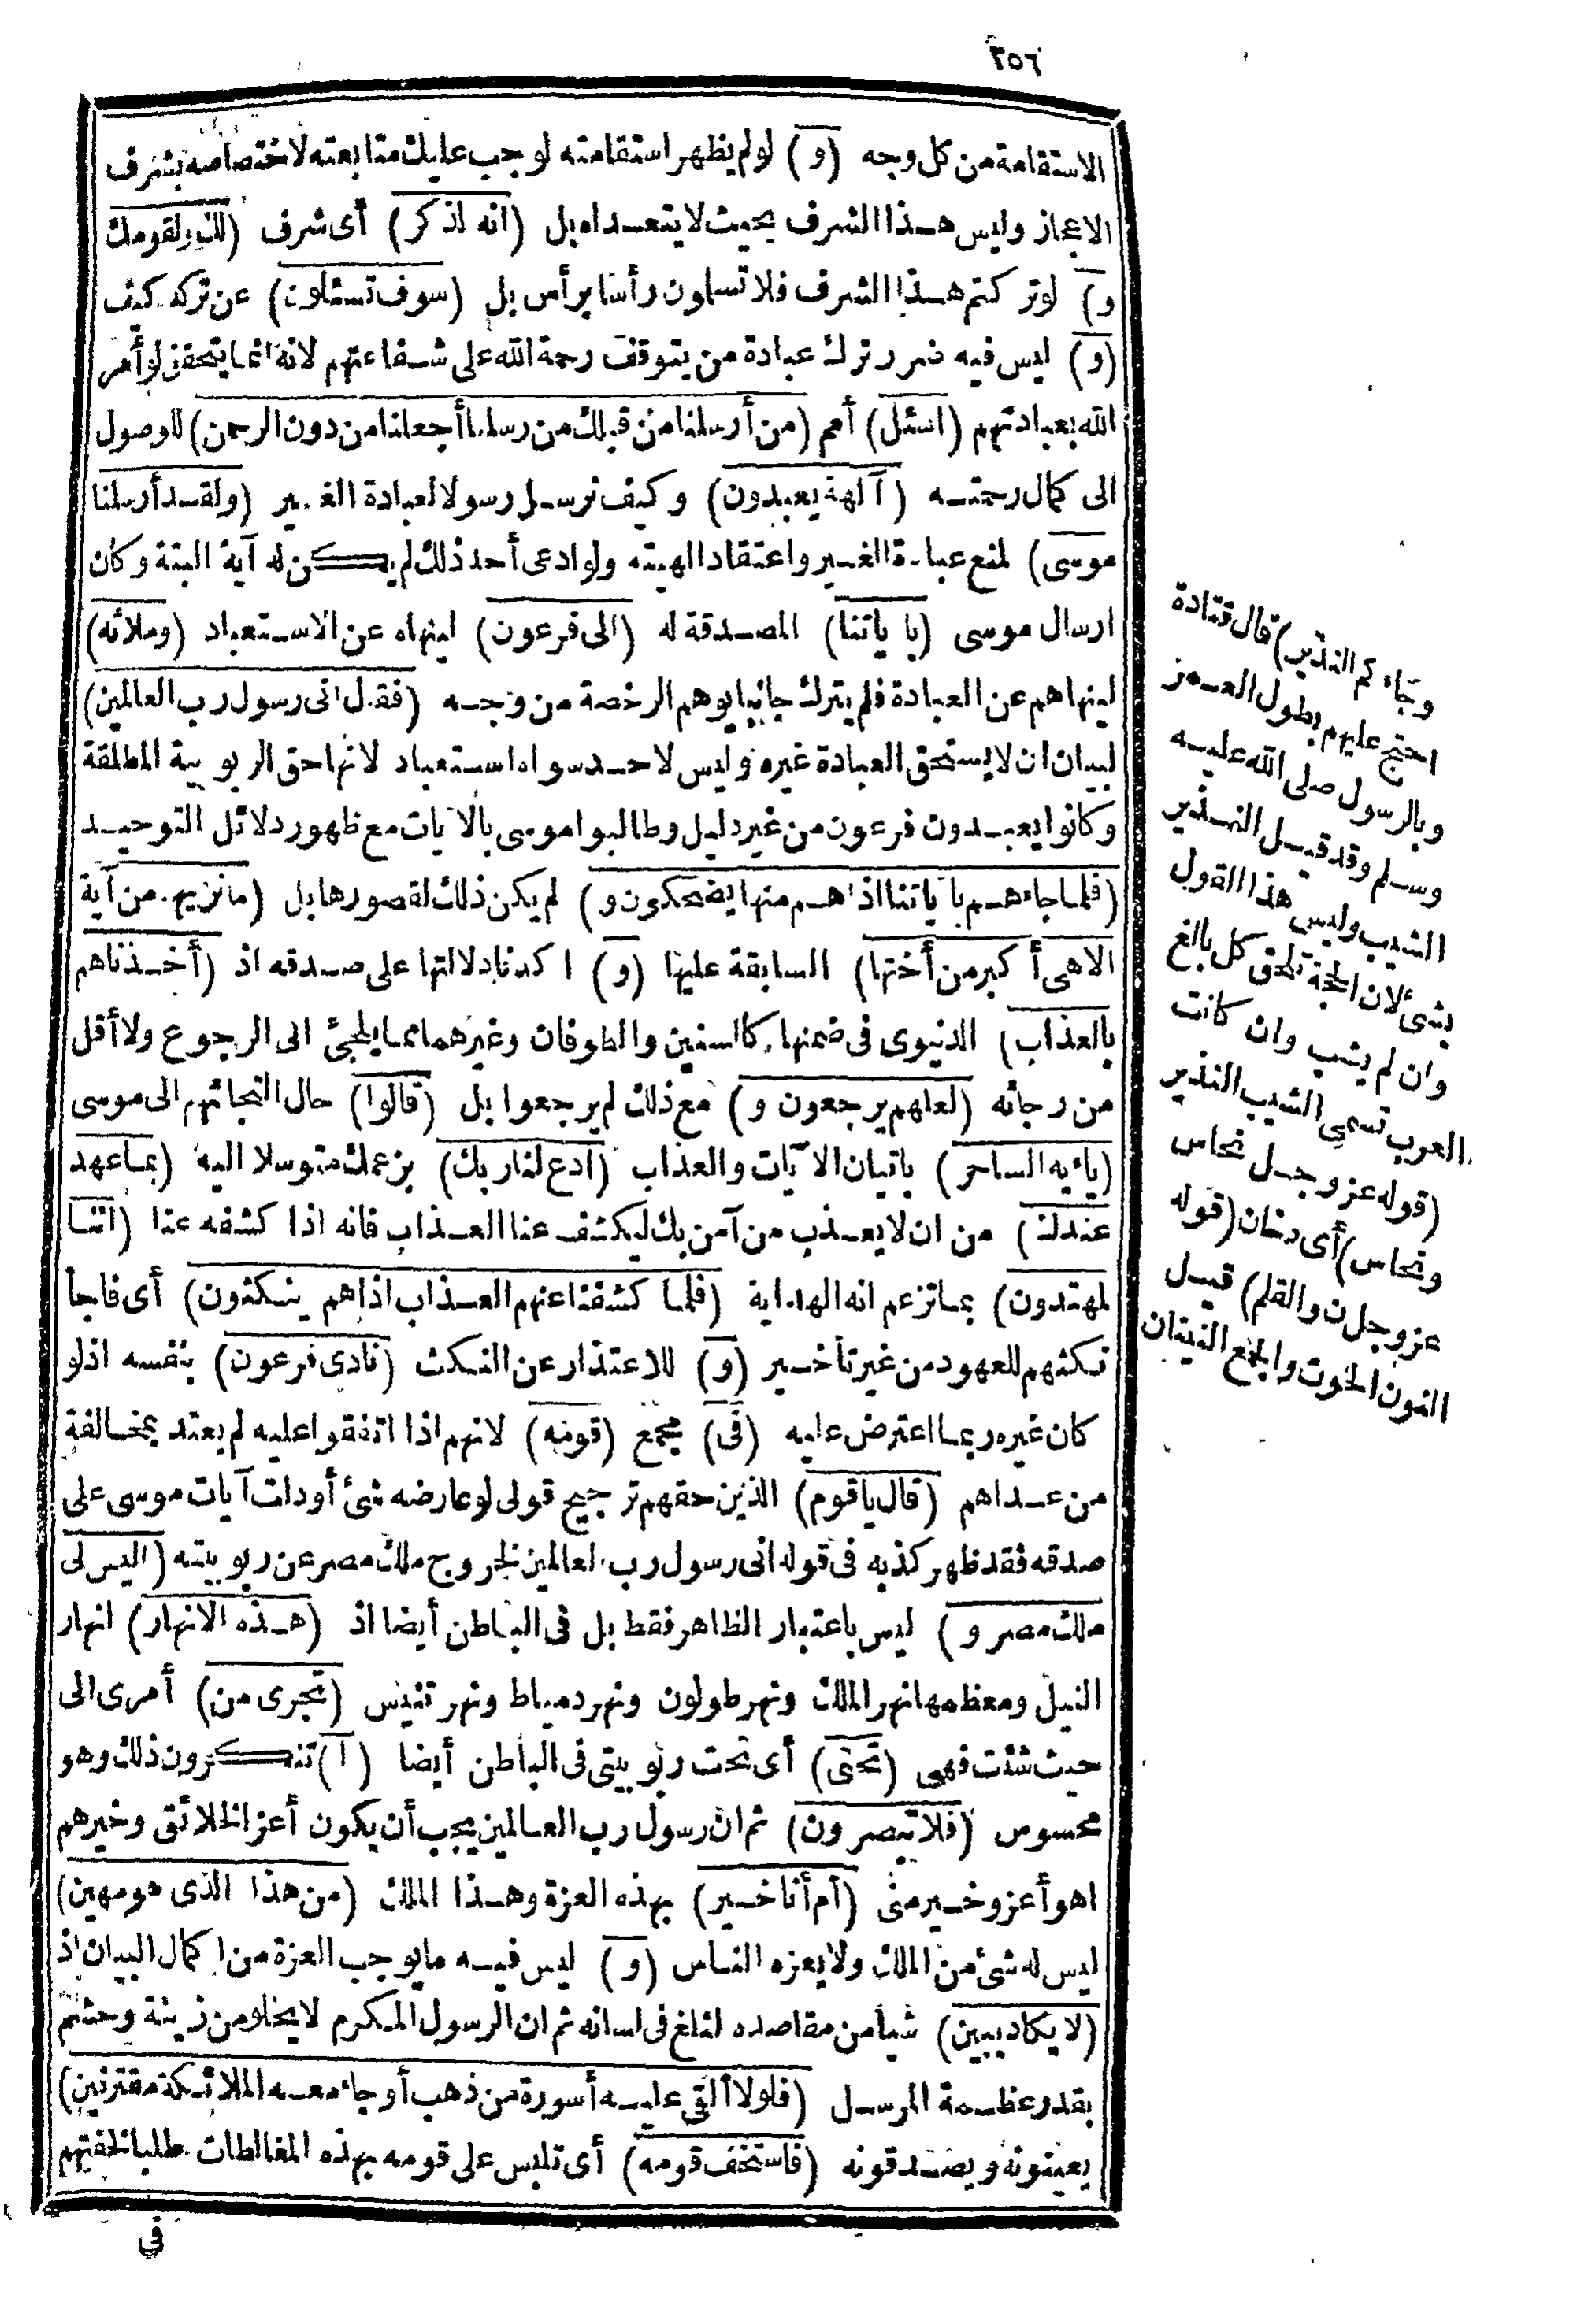 ٢٥٦
الاستقامة من كل وجه (و) لو لم يظهر استقامته لوجب عليك متابعته لاختصاصه بشرف
الاعجاز وليس هذا الشرف بحيث لا يتعداه بل (انه لذكر) أى شرف (لك ولقومك
و) لو تركتم هذا الشرف فلا تسلمون رأسا برأس بل (سوف تسئلون) عن تركه كيف
(و) ليس فيه ضرر ترك عبادة من يتوقف رحمة الله على شفاعتهم لانه انما يتحقق لو أمر
الله بعبادتهم (اسئل) أمم (من أرسلنا من قبلك من رسلنا أجعلنا من دون الرحمن) للوصول
الى كمال رحمته (آلهة يعبدون) وكيف نرسل رسولا لعبادة الغير (ولقد أرسلنا
موسى) لمنع عبادة الغير واعتقاد الهيته ولو ادعى أحد ذلك لم يكن له آية البتة وكان
ارسال موسى (با ياتنا) المصدقة له (الى فرعون) لينهاه عن الاستعباد (وملائه)
لينهاهم عن العبادة فلم يترك جانبا يوهم الرخصة من وجه (فقال انى رسول رب العالمين)
لبيان ان لا يستحق العبادة غيره وليس لاحد سواه استعباد لانها حق الربوبية المطلقة
وكانوا يعبدون فرعون من غير دليل وطالبوا موسى بالآيات مع ظهور دلائل التوحيد
(فلما جاءهم باياتنا اذا هم منها يضحكون و) لم يكن ذلك لقصورها بل (ما نريهم من آية
الا هى أكبر من أختها) السابقة عليها (و) اكدنا دلالتها على صدقه اذ (أخذناهم
بالعذاب) الدنيوى فى ضمنها كالسنين والطوفان وغيرهما مما يلجئ الى الرجوع ولا أقل
من رجائه (لعلهم يرجعون و) مع ذلك لم يرجعوا بل (قالوا) حال التجائهم الى موسى
(ياءيه الساحر) باتيان الآيات والعذاب (ادع لنا ربك) بزعمك متوسلا اليه (بما عهد
عندك) من ان لا يعذب من آمن بك ليكشف عنا العذاب فانه اذا كشفه عنا (اننا
لمهتدون) بما تزعم انه الهداية (فلما كشفنا عنهم العذاب اذا هم ينكثون) أى فاجأ
نكثهم للعهود من غير تأخير (و) للاعتذار عن النكث (نادى فرعون) بنفسه اذ لو
كان غيره ربما اعترض عليه (فى) مجمع (قومه) لانهم اذا اتفقوا عليه لم يعتد بمخالفة
من عداهم (قال يا قوم) الذين حقهم ترجيح قولى لو عارضه شئ أو دلت آيات موسى على
صدقه فقد ظهر كذبه فى قوله انى رسول رب العالمين لخروج ملك مصر عن ربوبيته (اليس لى
ملك مصر و) ليس باعتبار الظاهر فقط بل فى الباطن أيضا اذ (هذه الانهار) انهار
النيل ومعظمها نهر الملك ونهر طولون ونهر دمياط ونهر تنيس (تجرى من) أمرى الى
حيث شئت فهى (تحتى) أى تحت ربوبيتى فى الباطن أيضا (أ) تنكرون ذلك وهو
محسوس (فلا تبصرون) ثم ان رسول رب العالمين يجب أن يكون أعز الخلائق وخيرهم
اهو أعز وخير منى (أم أنا خير) بهذه العزة وهذا الملك (من هذا الذى هو مهين)
ليس له شئ من الملك ولا يعزه الناس (و) ليس فيه ما يوجب العزة من اكمال البيان اذ
(لا يكاد يبين) شيأ من مقاصده لثلغ فى لسانه ثم ان الرسول المكرم لا يخلو من زينة وحشم
بقدر عظمة المرسل (فلولا ألقى عليه أسورة من ذهب أو جاء معه الملائكة مقترنين)
يعينونه ويصدقونه (فاستخف قومه) أى تلبس على قومه بهذه المغالطات طلبا لخفتهم
فى
وجاءكم النذير) قال قتادة
احتج عليهم بطول العمر
وبالرسول صلى الله عليه
وسلم وقد قيل النذير
الشيب وليس هذا القول
بشئ لان الحجة تلحق كل بالغ
وان لم يشب وان كانت
العرب تسمى الشيب النذير
(قوله عز وجل نحاس
ونحاس) أى دخان (قوله
عز وجل ن والقلم) قيل
النون الحوت والجمع النينان